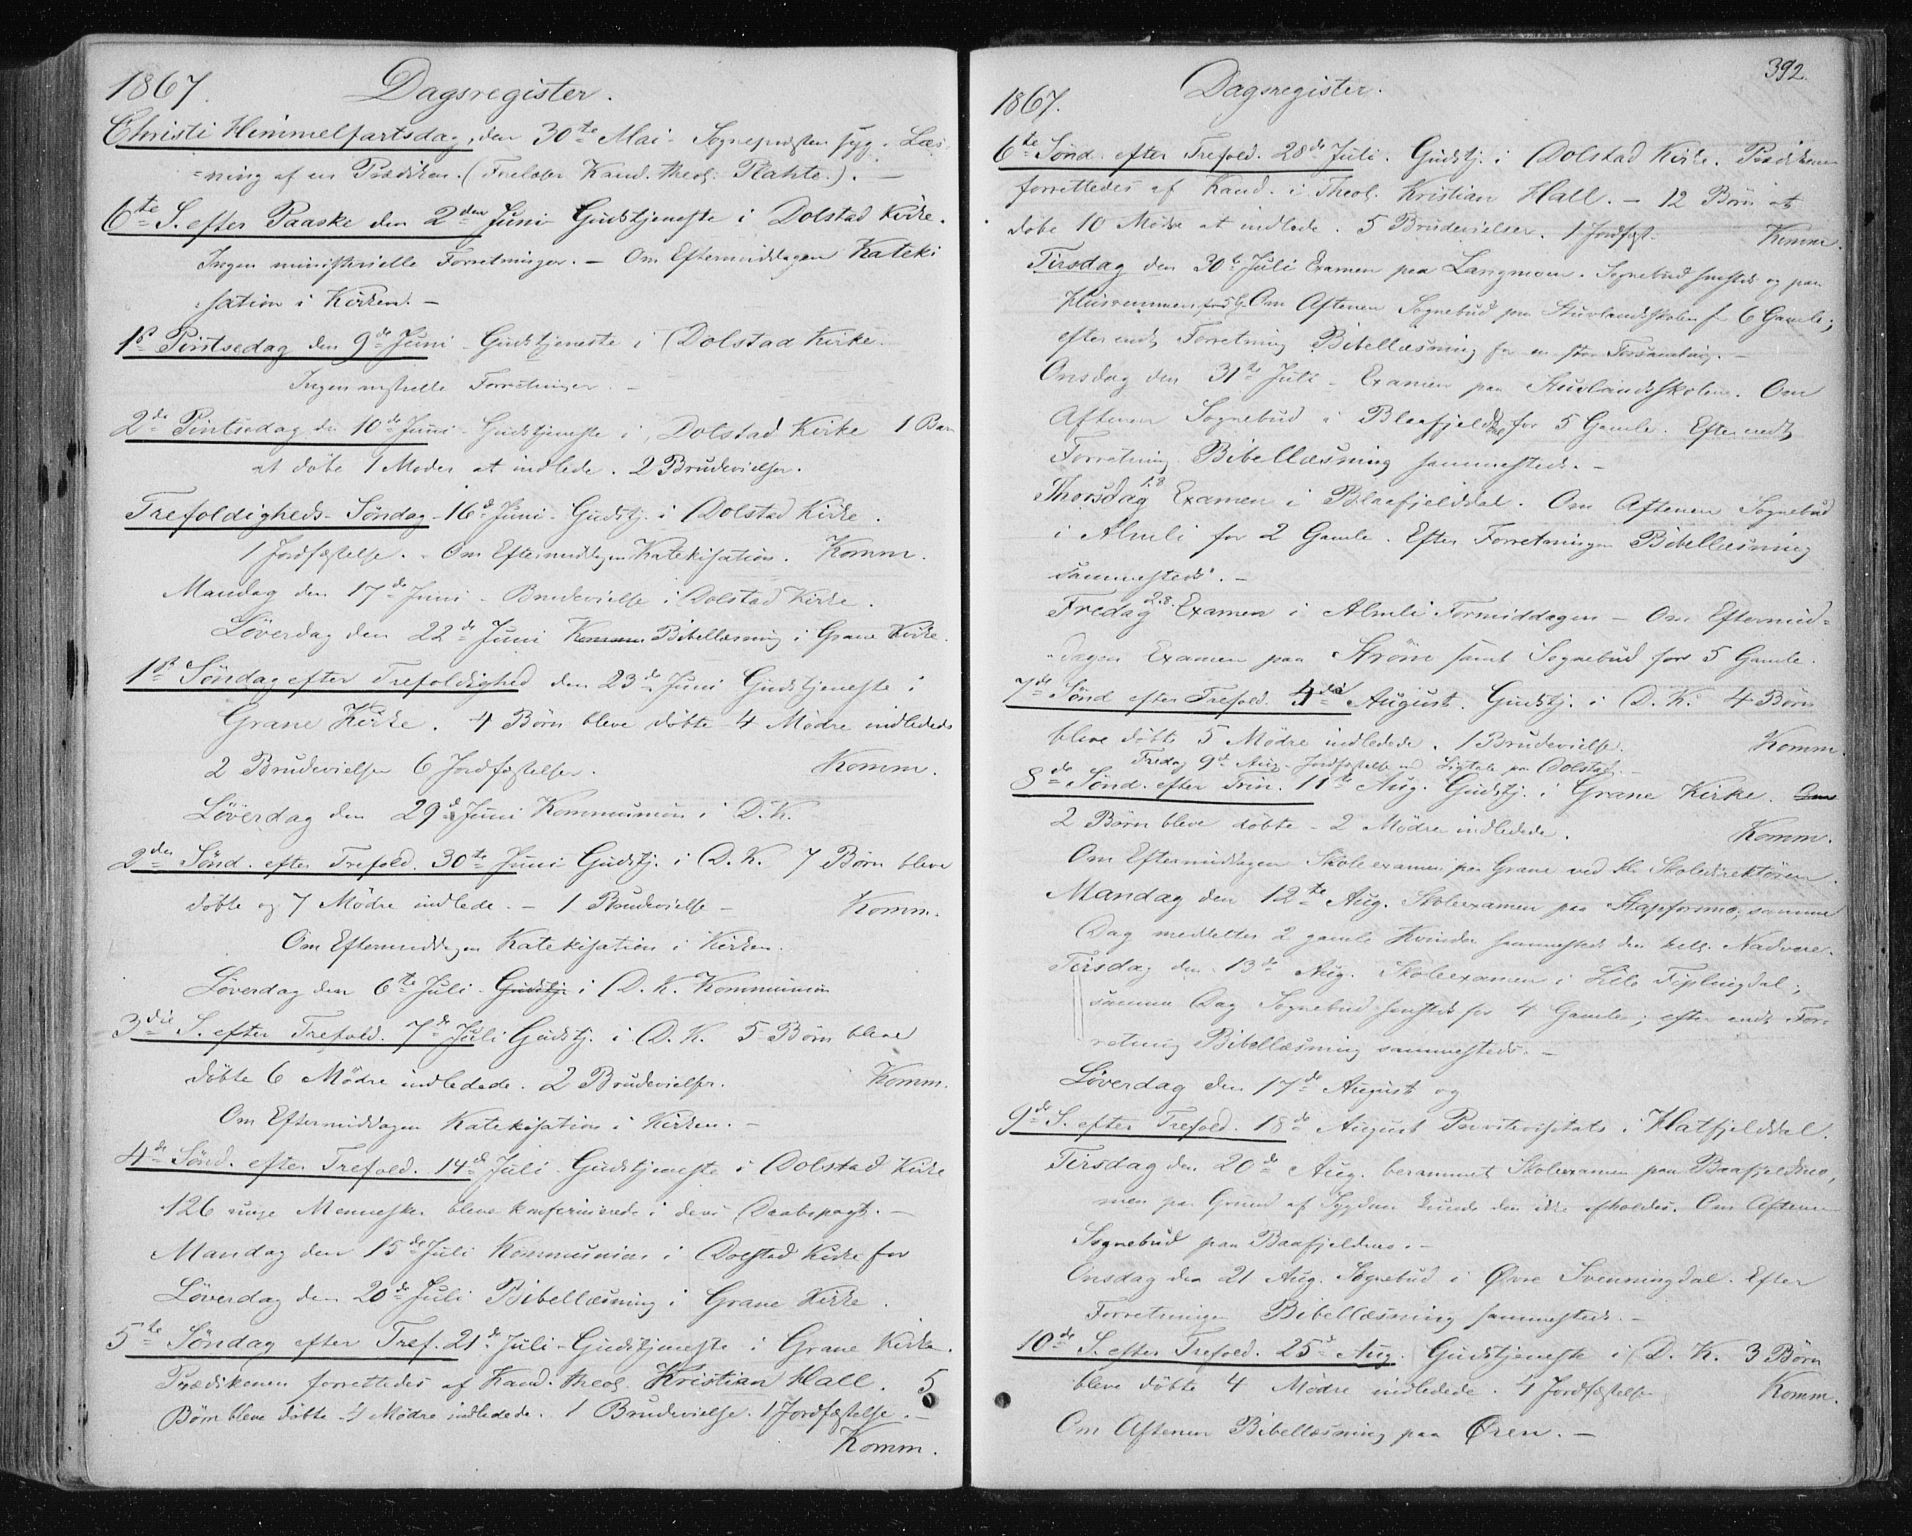 1867. Dagsregister.
Christi Himmelfartsdag, den 30te Mai - Sognepresten syg. Læs
=ning af en Prædiken. (Forelæser Kand. theol. Plahte.). —
6te S. efter Paaske den 2den Juni Gudstjeneste i Dolstad Kirke.
Ingen ministerielle Forretninger. — Om Eftermiddagen Kateki
=sation i Kirken. —
1st Pintsedag den 9de Juni - Gudstjeneste i Dolstad Kirke.
Ingen mistrielle Forretninger. —
2de Pintsedag den 10de Juni - Gudstjeneste i Dolstad Kirke 1 Barn
at døbe 1 Moder at indlede. 2 Brudevielser.
Trefoldigheds-Søndag - 16d Juni - Gudstj. i Dolstad Kirke.
1 Jordfæstelse. - Om Eftermiddagen Katekisation. Komm.
Mandag den 17de Juni - Brudevielse i Dolstad Kirke.
Løverdag den 22de Juni Komm Bibellæsning i Grane Kirke.
1st Søndag efter Trefoldighed den 23de Juni Gudstjeneste i
Grane Kirke. 4 Børn bleve døbte 4 Mødre indledede
2 Brudevielser 6 Jordfæstelser. Komm.
Løverdag den 29de Juni Kommunion i D.K.
2den Sønd. efter Trefold. 30te Juni Gudstj. i D. K. 7 Børn bleve
døbte og 7 Mødre indlede. — 1 Brudevielse — Komm.
Om Eftermiddagen Katekisation i Kirken.
Løverdag den 6te Juli - Gudstj i D. K. Kommunion
3die S. efter Trefold. 7de Juli Gudstj. i D. K. 5 Børn bleve
døbte 6 Mødre indledede. 2 Brudevielser. Komm.
Om Eftermiddagen Katekisation i Kirken. —
4de Sønd. efter Trefold. 14d Juli - Gudstjeneste i Dolstad Kirke
126 unge Mennesker bleve konfirmerede i deres Daabspagt. —
Mandag den 15de Juli Kommunion i Dolstad Kirke for
Løverdag den 20de Juli Bibellæsning i Grane Kirke.
5te Søndag efter Tref. 21de Juli - Gudstjeneste i Grane Kirke.
Prædikenen forrettedes af Kand. theol. Kristian Hall. 5
Børn bleve døbte - 4 Mødre indledede. 1 Brudevielse. 1 Jordfæstelse. —
Komm.
392.
1867. Dagsregister.
6te Sønd. efter Trefold. 28de Juli. Gudstj. i Dolstad Kirke. Prædikenen
forrettedes af Kand. i Theol. Kristian Hall. — 12 Børn at
døbe 10 Mødre at indlede. 5 Brudevielser. 1 Jordfæst. Komm.
Tirsdag den 30te Juli Examen paa Langmoen. Sognebud sammesteds og paa
Om Aftenen Sognebud paa Stuvlandsskolen for 6 Gamle;
efter endt Forretning Bibellæsning for en stor Forsamling. —
Onsdag den 31te Juli - Examen paa Stuvlandsskolen. Om
Aftenen Sognebud i Blaafjelddal for 5 Gamle. Efter endt
Forretning Bibellæsning sammesteds. —
Thorsdag 1.8 Examen i Blaafjelddal. Om Aftenen Sognebud
i Almli for 2 Gamle. Efter Forretningen Bibellæsning
sammesteds. —
Fredag 2.8. Examen i Almli Formiddagen — Om Eftermid=
=dagen Examen paa Strøm samt Sognebud for 5 Gamle.
7de Sønd efter Trefold. 4de August. Gudstj. i D. K. 4 Børn
bleve døbte 5 Mødre indledede. 1 Brudevielse. Komm.
Fredag 9de Aug. Jordfæstelse med Ligtale paa Dolstad. —
8de Sønd. efter Trin. 11te Aug. Gudstj. i Grane Kirke. Om
2 Børn bleve døbte - 2 Mødre indledede. Komm.
Om Eftermiddagen Skoleexamen paa Grane ved Hr. Skoledirektøren.
Mandag den 12te Aug. Skoleexamen paa Stapformo; samme
Dag meddeltes 2 gamle Kvinder sammesteds den hell. Nadvere.
Tirsdag den 13de Aug. Skoleexamen i Lille Fiplingdal;
samme Dag Sognebud sammesteds for 4 Gamle; efter endt For=
retning Bibellæsning sammesteds. —
Løverdag den 17de August og
9de S. efter Trefold. 18de August Provstevisitats i Hatfjelddal.
Tirsdag den 20de Aug. berammet Skoleexamen paa Baafjeldmo,
men paa Grund af Sygdom kunde den ikke afholdes. Om Aftenen
Sognebud paa Baafjeldmo. —
Onsdag den 21 Aug. Sognebud i Øvre Svenningdal. Efter
Forretningen Bibellæsning sammesteds. —
10de S. efter Trefold. 25d Aug. Gudstjeneste i D. K. 3 Børn
bleve døbte 4 Mødre indledede. 4 Jordfæstelse Komm.
Om Aftenen Bibellæsning paa Øren. —